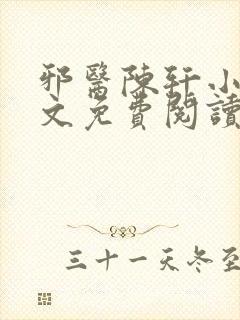 邪醫陳軒小
文免費閱讀
三十一天冬至